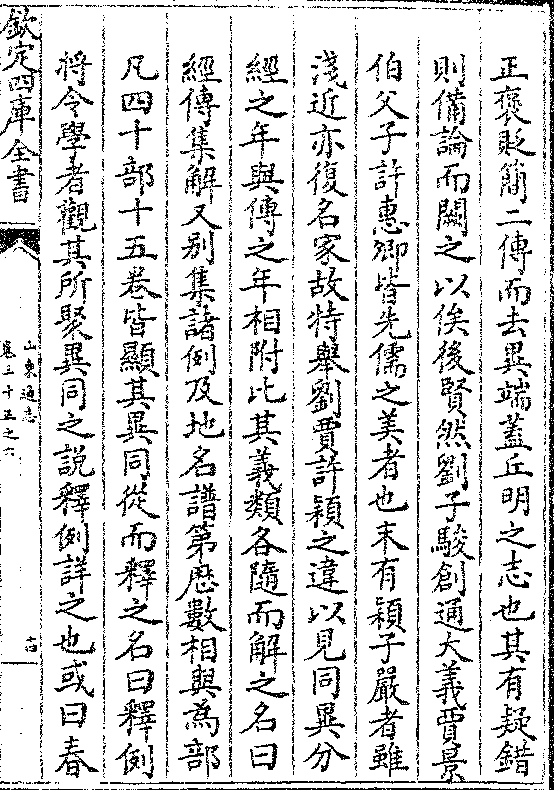 正褒貶簡二傳而去異端蓋丘明之志也其有疑錯
則備論而闕之以俟後賢然劉子駿創通大義賈景
伯父子許惠卿皆先儒之美者也末有潁子嚴者雖
淺近亦復名家故特舉劉賈許潁之違以見同異分
經之年與傳之年相附比其義類各隨而解之名曰
經傳集解又别集諸例及地名譜第歴數相與為部
凡四十部十五卷皆顯其異同從而釋之名曰釋例
將令學者觀其所聚異同之說釋例詳之也或曰春
欽定四庫全書
山東通志
卷三十五之六
十古